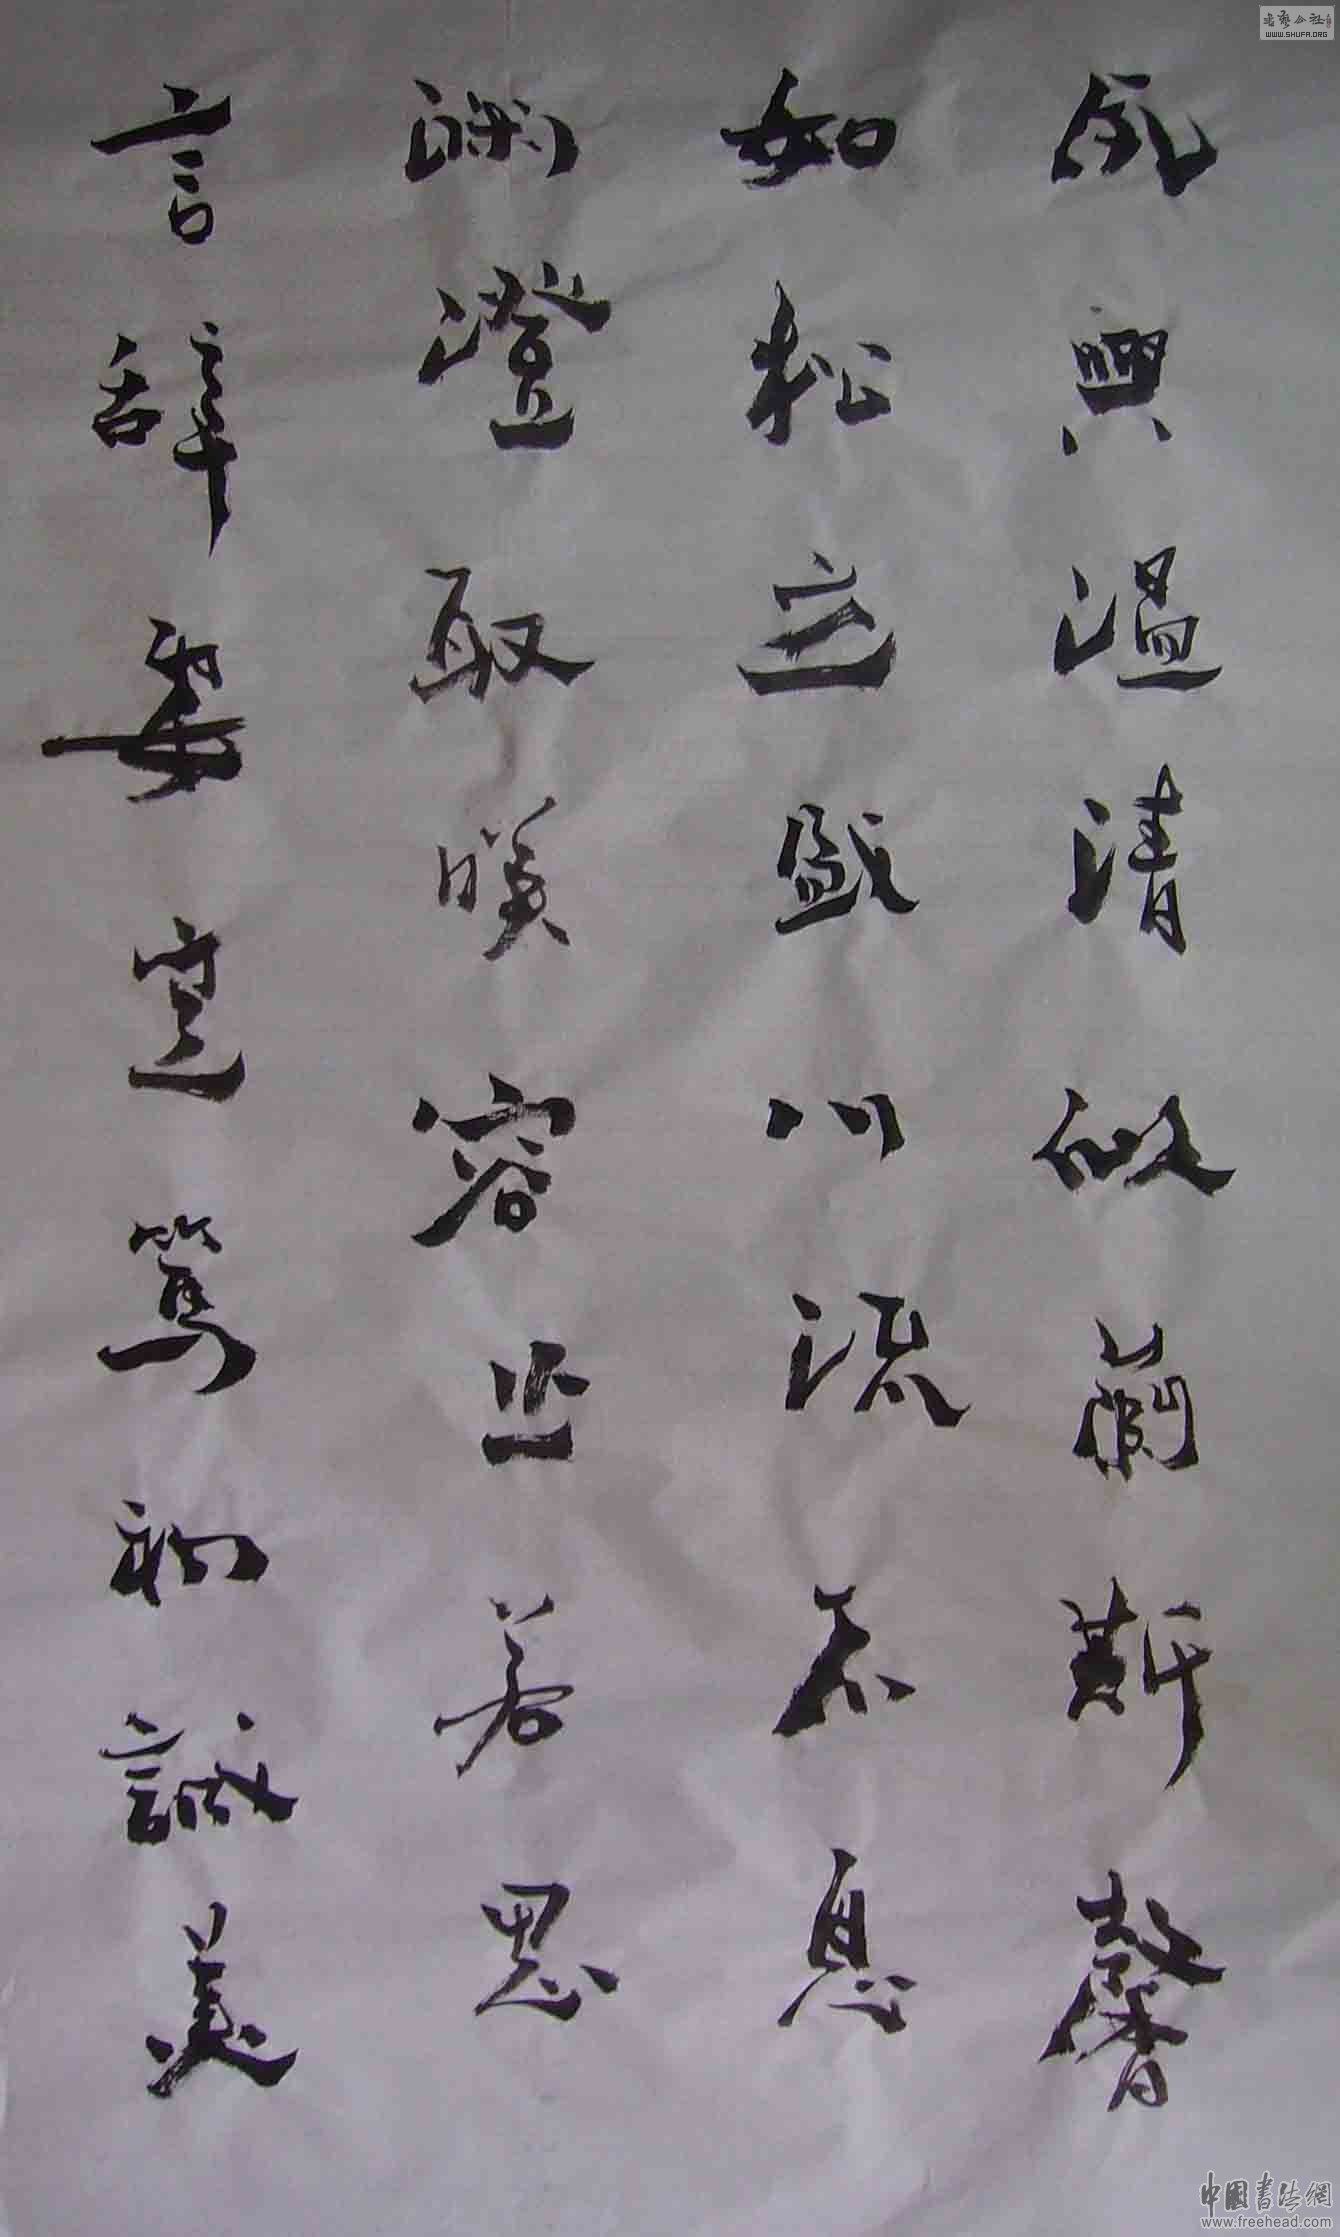 夙興溫清似蘭斯馨
如松立盛川流不息
渊澄取暎容止若思
言辞安定篤初誠美
书艺公社
WWW.SHUFA.ORG
中國書法網
www.freehead.com